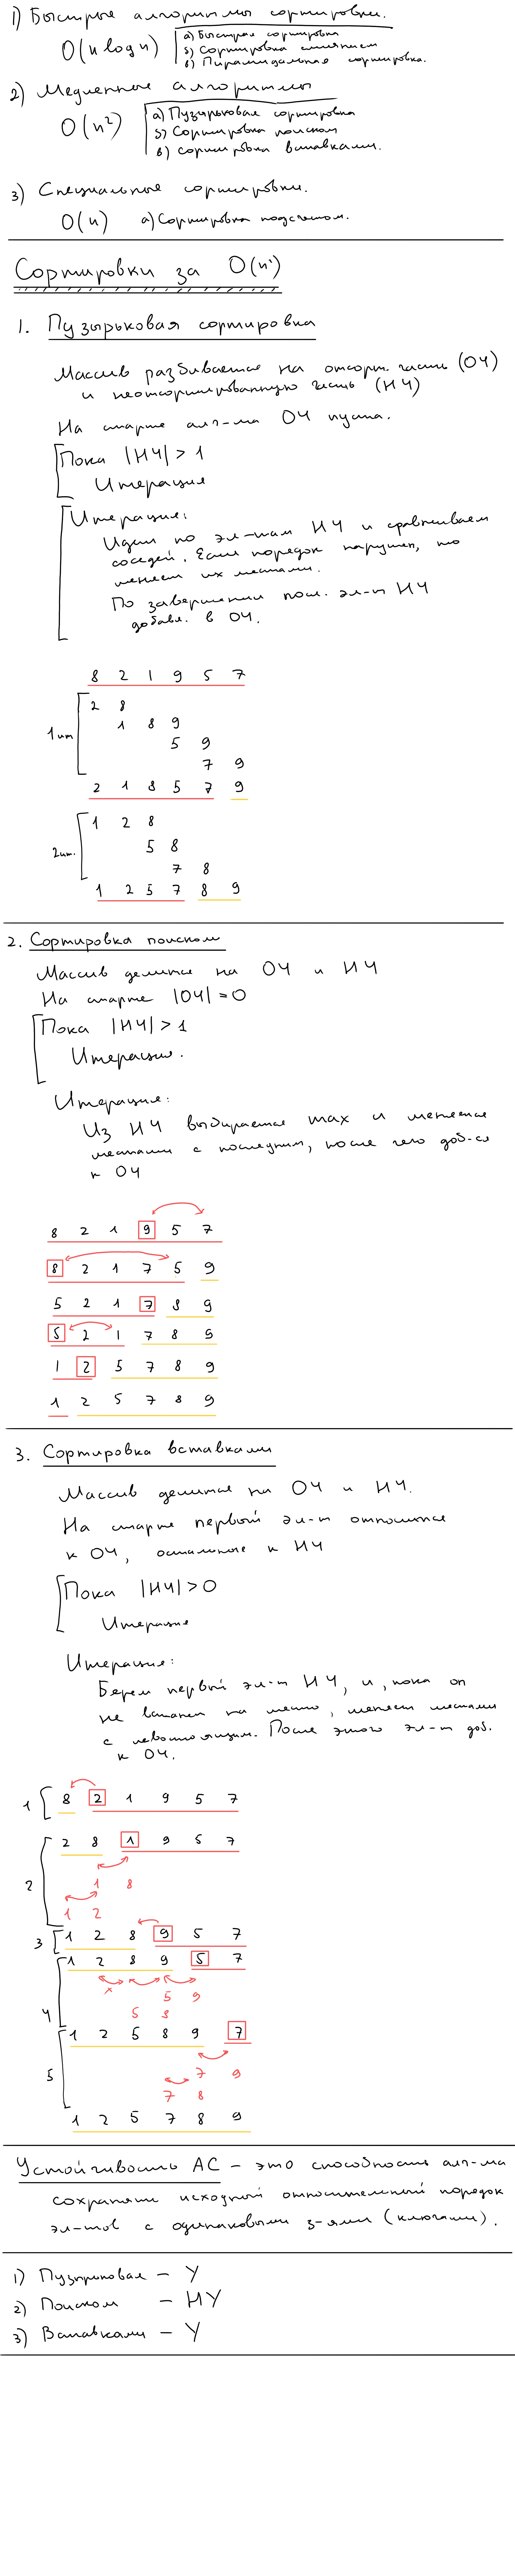 1) Быстрые алгоритмы сортировки.
O(n log n)
а) Быстрая сортировка
б) Сортировка слиянием
в) Пирамидальная сортировка.
2) Медленные алгоритмы
O(n²)
а) Пузырьковая сортировка
б) Сортировка поиском
в) сортировка вставками.
3) Специальные сортировки.
O(n) а) Сортировка подсчетом.
Сортировки за O(n²)
1. Пузырьковая сортировка
Массив разбивается на отсорт. часть (ОЧ)
и неотсортированную часть (НЧ)
На старте алг-ма ОЧ пуста.
Пока |НЧ| > 1
Итерация
Итерация:
Идем по эл-там НЧ и сравниваем
соседей. Если порядок нарушен, то
меняем их местами.
По завершении посл. эл-т НЧ
добавл. в ОЧ.
8 2 1 9 5 7
1 ит
2 8
1 8 9
5 9
7 9
2 1 8 5 7 9
2 ит.
1 2 8
5 8
7 8
1 2 5 7 8 9
2. Сортировка поиском
Массив делится на ОЧ и НЧ
На старте |ОЧ| = 0
Пока |НЧ| > 1
Итерация.
Итерация:
Из НЧ выбирается max и меняется
местами с последним, после чего доб-ся
к ОЧ
8 2 1 9 5 7
8 2 1 7 5 9
5 2 1 7 8 9
5 2 1 7 8 9
1 2 5 7 8 9
1 2 5 7 8 9
3. Сортировка вставками
Массив делится на ОЧ и НЧ.
На старте первый эл-т относится
к ОЧ, остальные к НЧ
Пока |НЧ| > 0
Итерация
Итерация:
Берем первый эл-т НЧ, и, пока он
не встанет на место, меняем местами
с левостоящим. После этого эл-т доб.
к ОЧ.
1 8 2 1 9 5 7
2 8 1 9 5 7
2
1 8
1 2
3 1 2 8 9 5 7
1 2 8 9 5 7
x
5 9
4 5 8
1 2 5 8 9 7
5 7 9
7 8
1 2 5 7 8 9
Устойчивость АС – это способность алг-ма
сохранять исходный относительный порядок
эл-тов с одинаковыми з-ями (ключами).
1) Пузырьковая – У
2) Поиском – НУ
3) Вставками – У